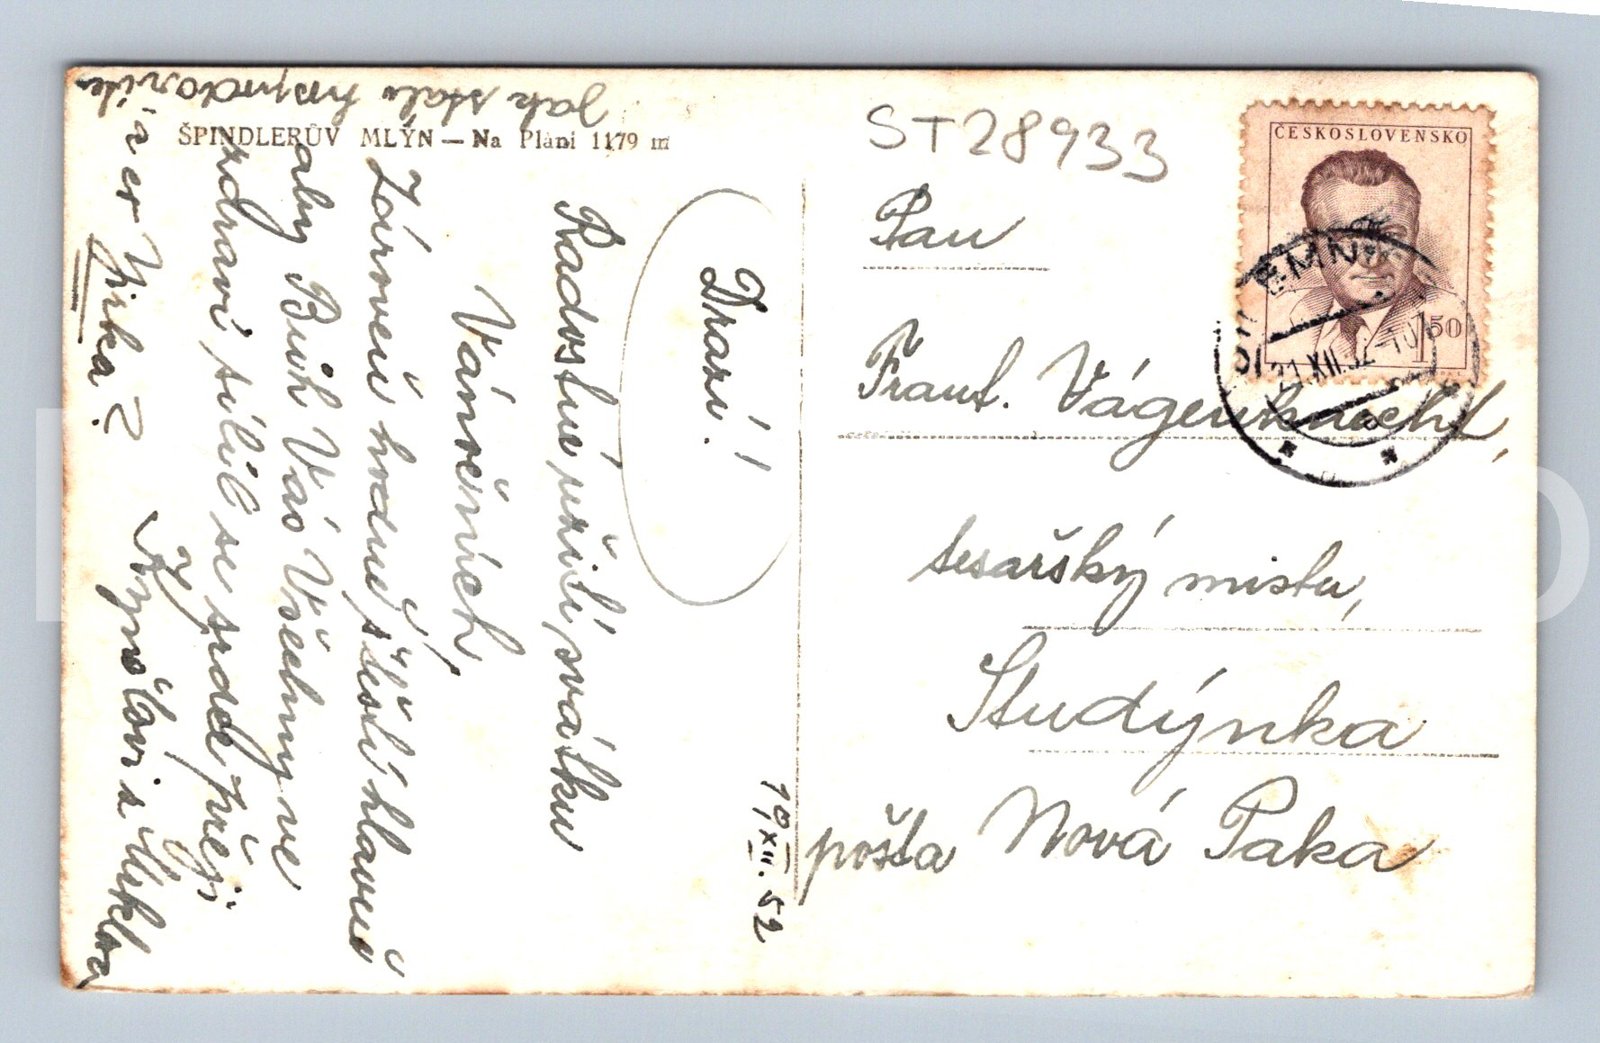 ŠPINDLERŮV MLÝN — Na Pláni 1179 m
Drazí!
Radostné užití svátků
Vánočních,
Zároveň hodně štěstí hlavně
aby Bůh Vás Všechny ve
zdraví sílil se srdce přejí
Jak stále hospodaříte
Jirka?
19/XII. 52
ST28933
ČESKOSLOVENSKO
1.50
EMN
21.XII.52-10
Pan
Frant. Vágenknecht,
tesařský mistr,
Studýnka
pošta Nová Paka